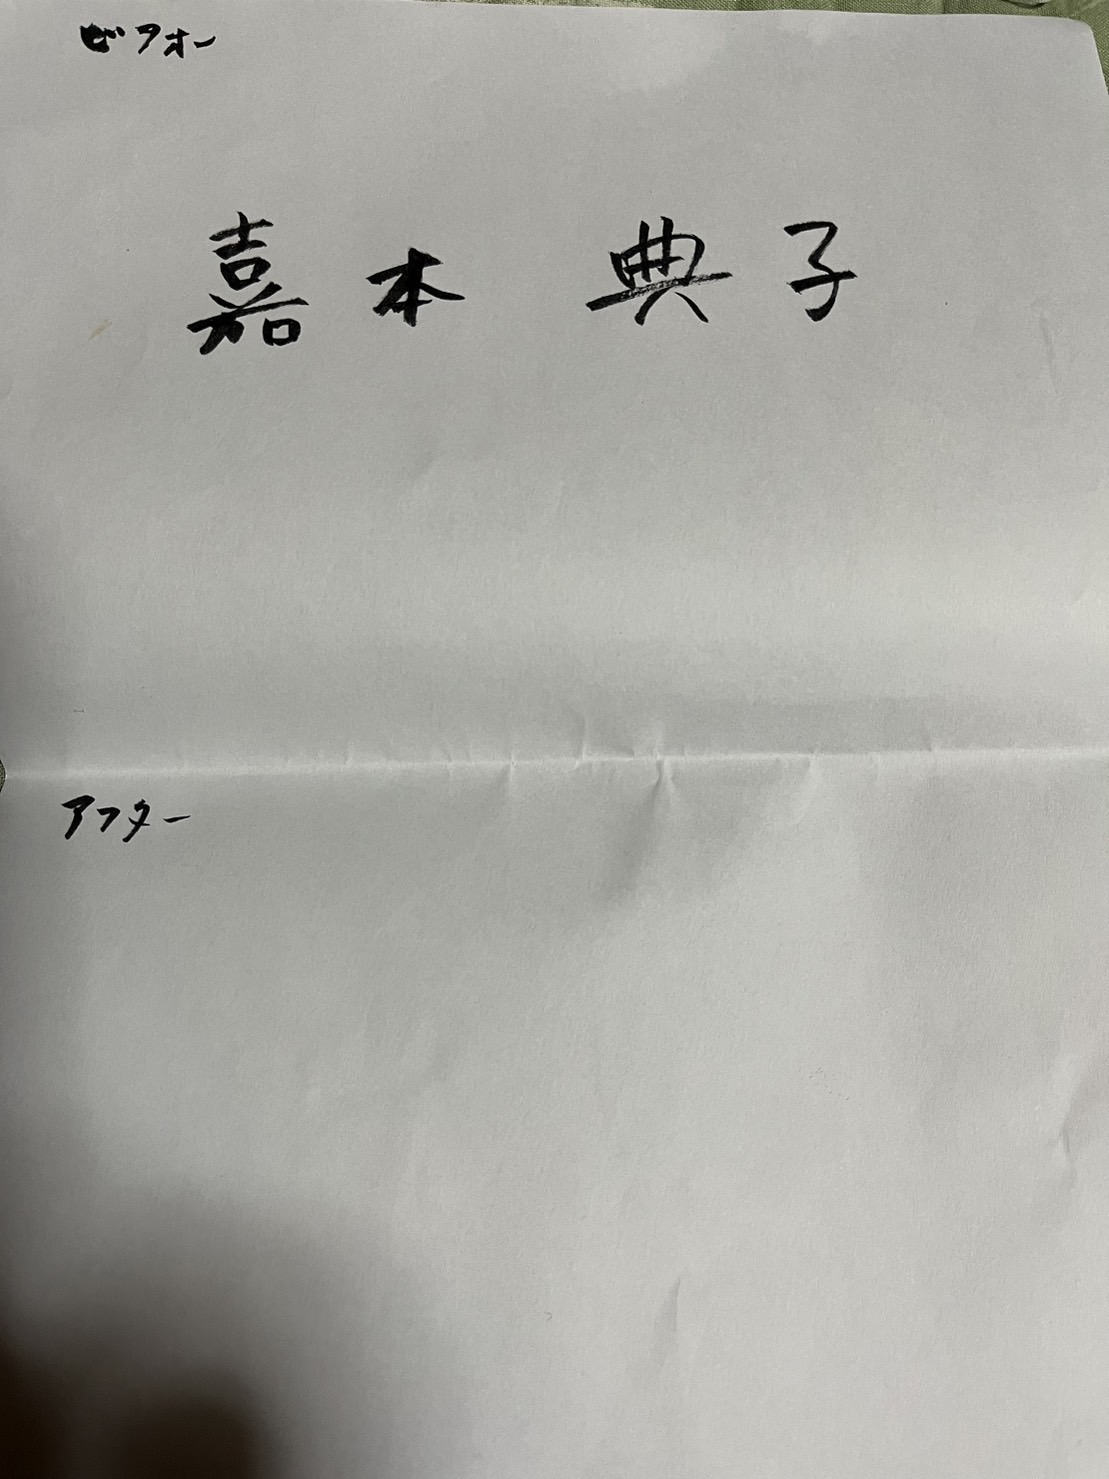 ビフォー
嘉本 典子
アフター